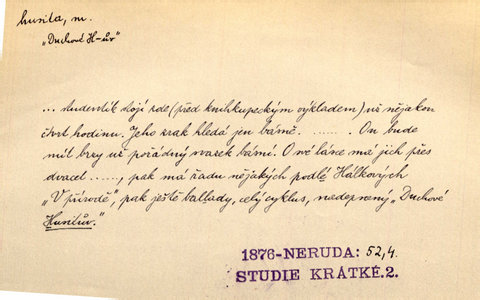 husita, m.
„Duchové H-ův“
... studentík stojí zde (před knihkupeckým výkladem) už nějakou
čtvrt hodinu. Jeho zrak hledá jen básně. ....... On bude
mít brzy už pořádný svazek básní. O své lásce má jich přes
dvacet ......, pak má řadu nějakých podlé Hálkových
„V přírodě“, pak ještě ballady, celý cyklus, nadepsaný „Duchové
Husitův.“
1876-NERUDA: 52,4.
STUDIE KRÁTKÉ.2.